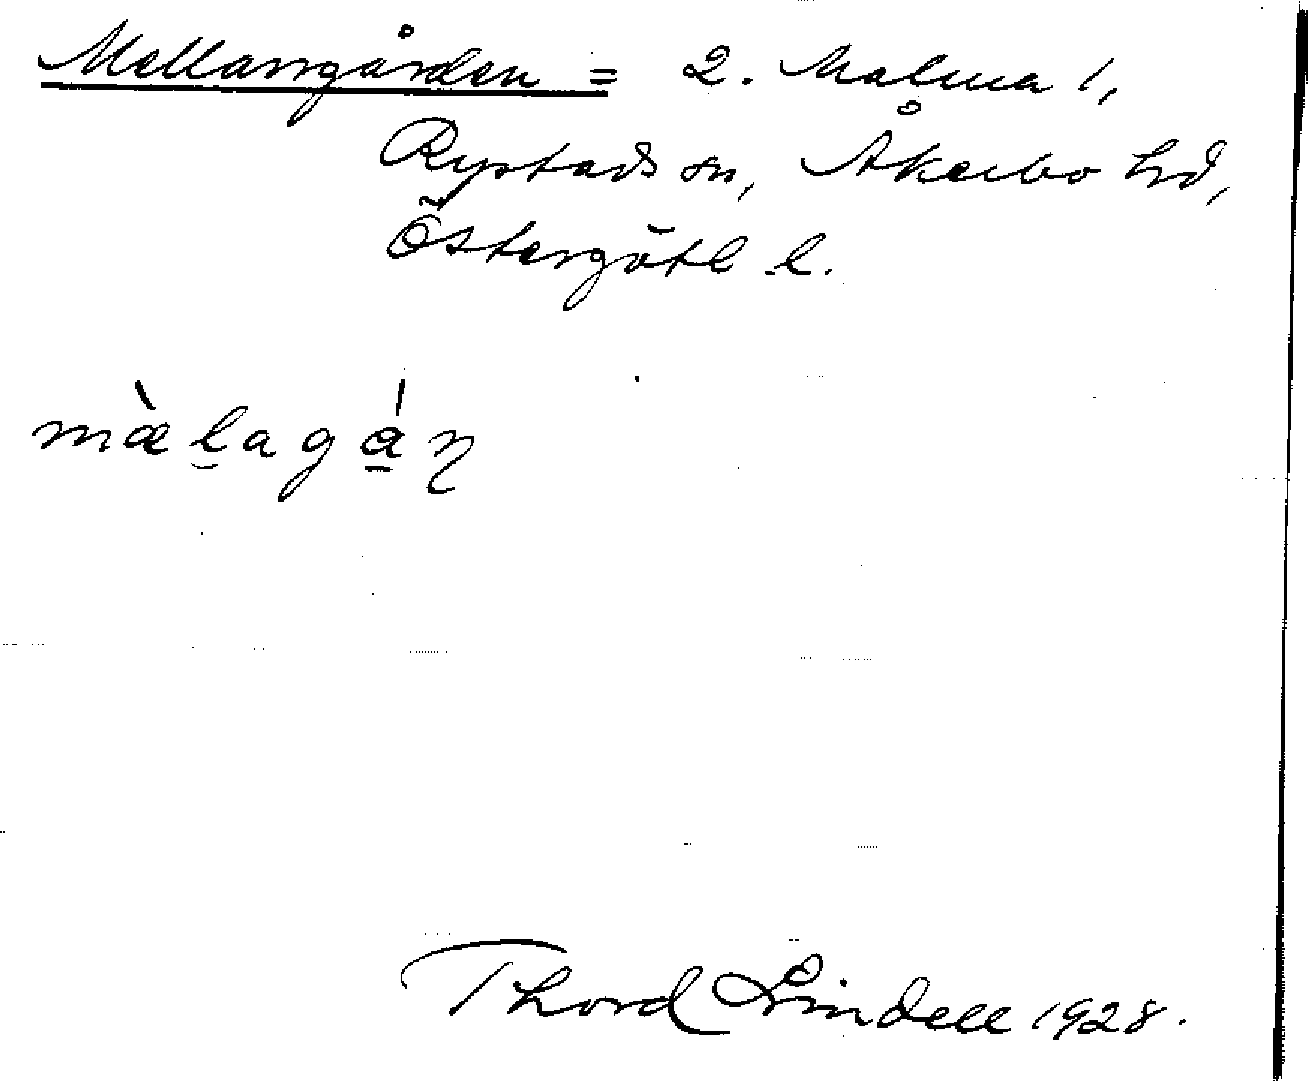 Mellangården = 2. Malma 1,
Rystads sn, Åkerbo hd,
Östergötl l.
mæ̀l̠agá̠ŋ
Thord Lindell 1928.